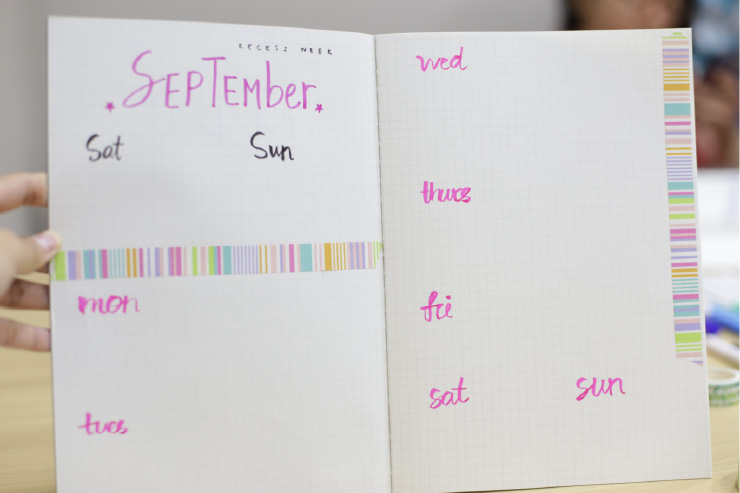 RECESS WEEK
SEPTEMBER
Sat Sun
mon
tues
wed
thurs
fri
sat sun